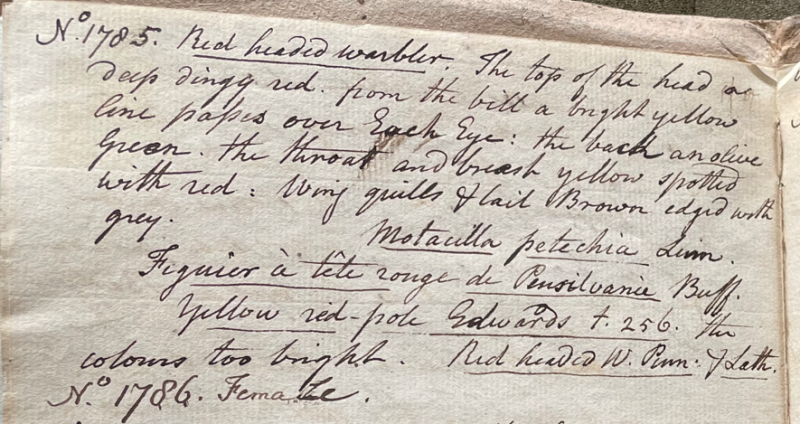 No. 1785. Red headed warbler. The top of the head a
deep dingy red. from the bill a bright yellow
line passes over Each Eye: the back an olive
Green. the throat and breast yellow spotted
with red: Wing quills & tail Brown edged with
grey.
Motacilla petechia Linn.
Figuier à tête rouge de Pensilvanie Buff.
Yellow red-pole Edwards t. 256. the
colours too bright. Red headed W. Penn: & Lath.
No. 1786. Female.